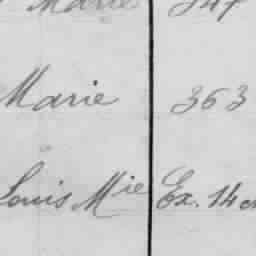 Marie 347
Marie 363
Louis Mie Ex. 14